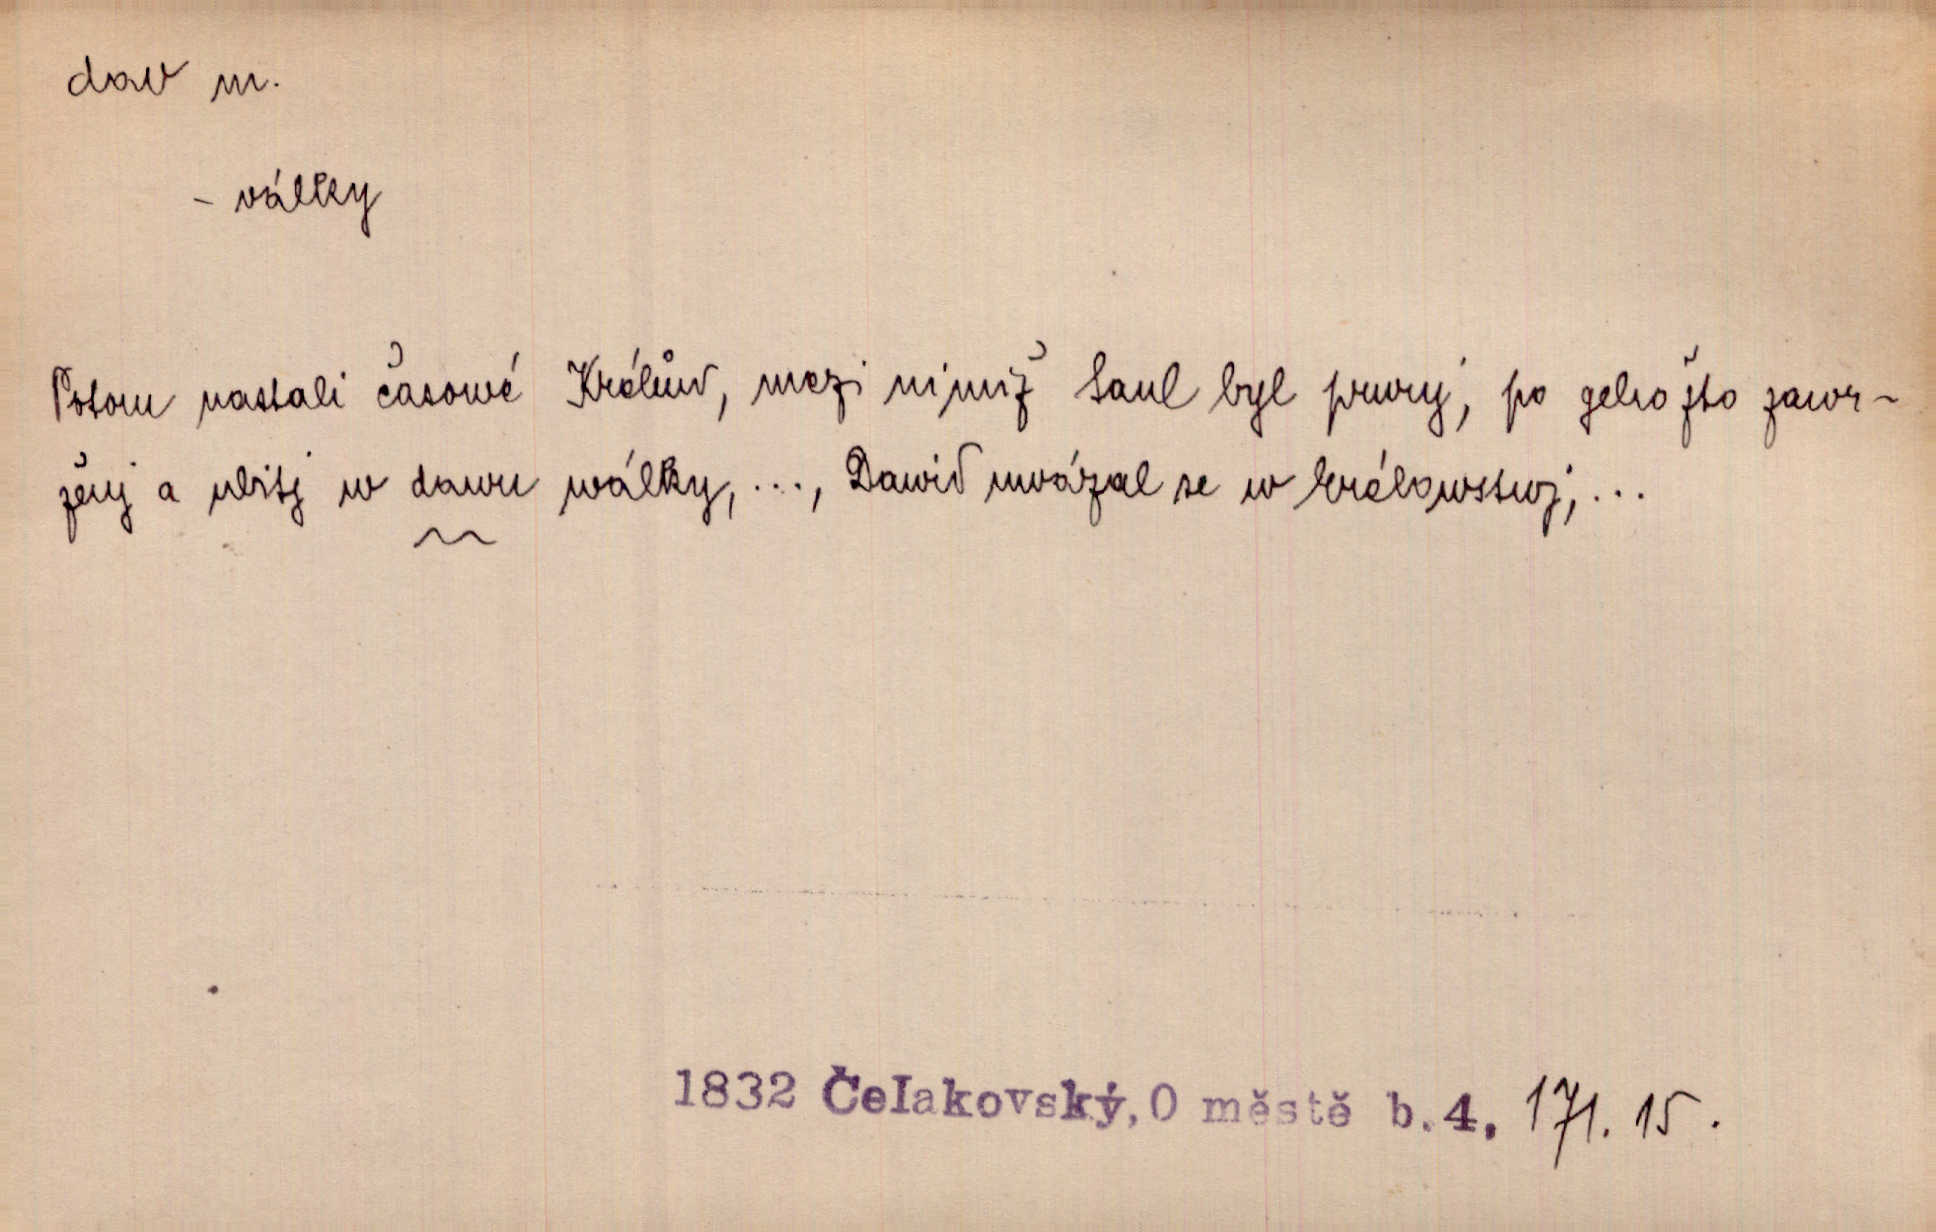 dav m.
- války
Potom nastali časowé Králůw, mezi nimiž Saul byl prwnj, po gehožto zawr-
ženj a ubitj w dawu wálky, ..., Dawid uwázal se w králowstwj, ...
1832 Čelakovský, O městě b. 4, 171. 15.